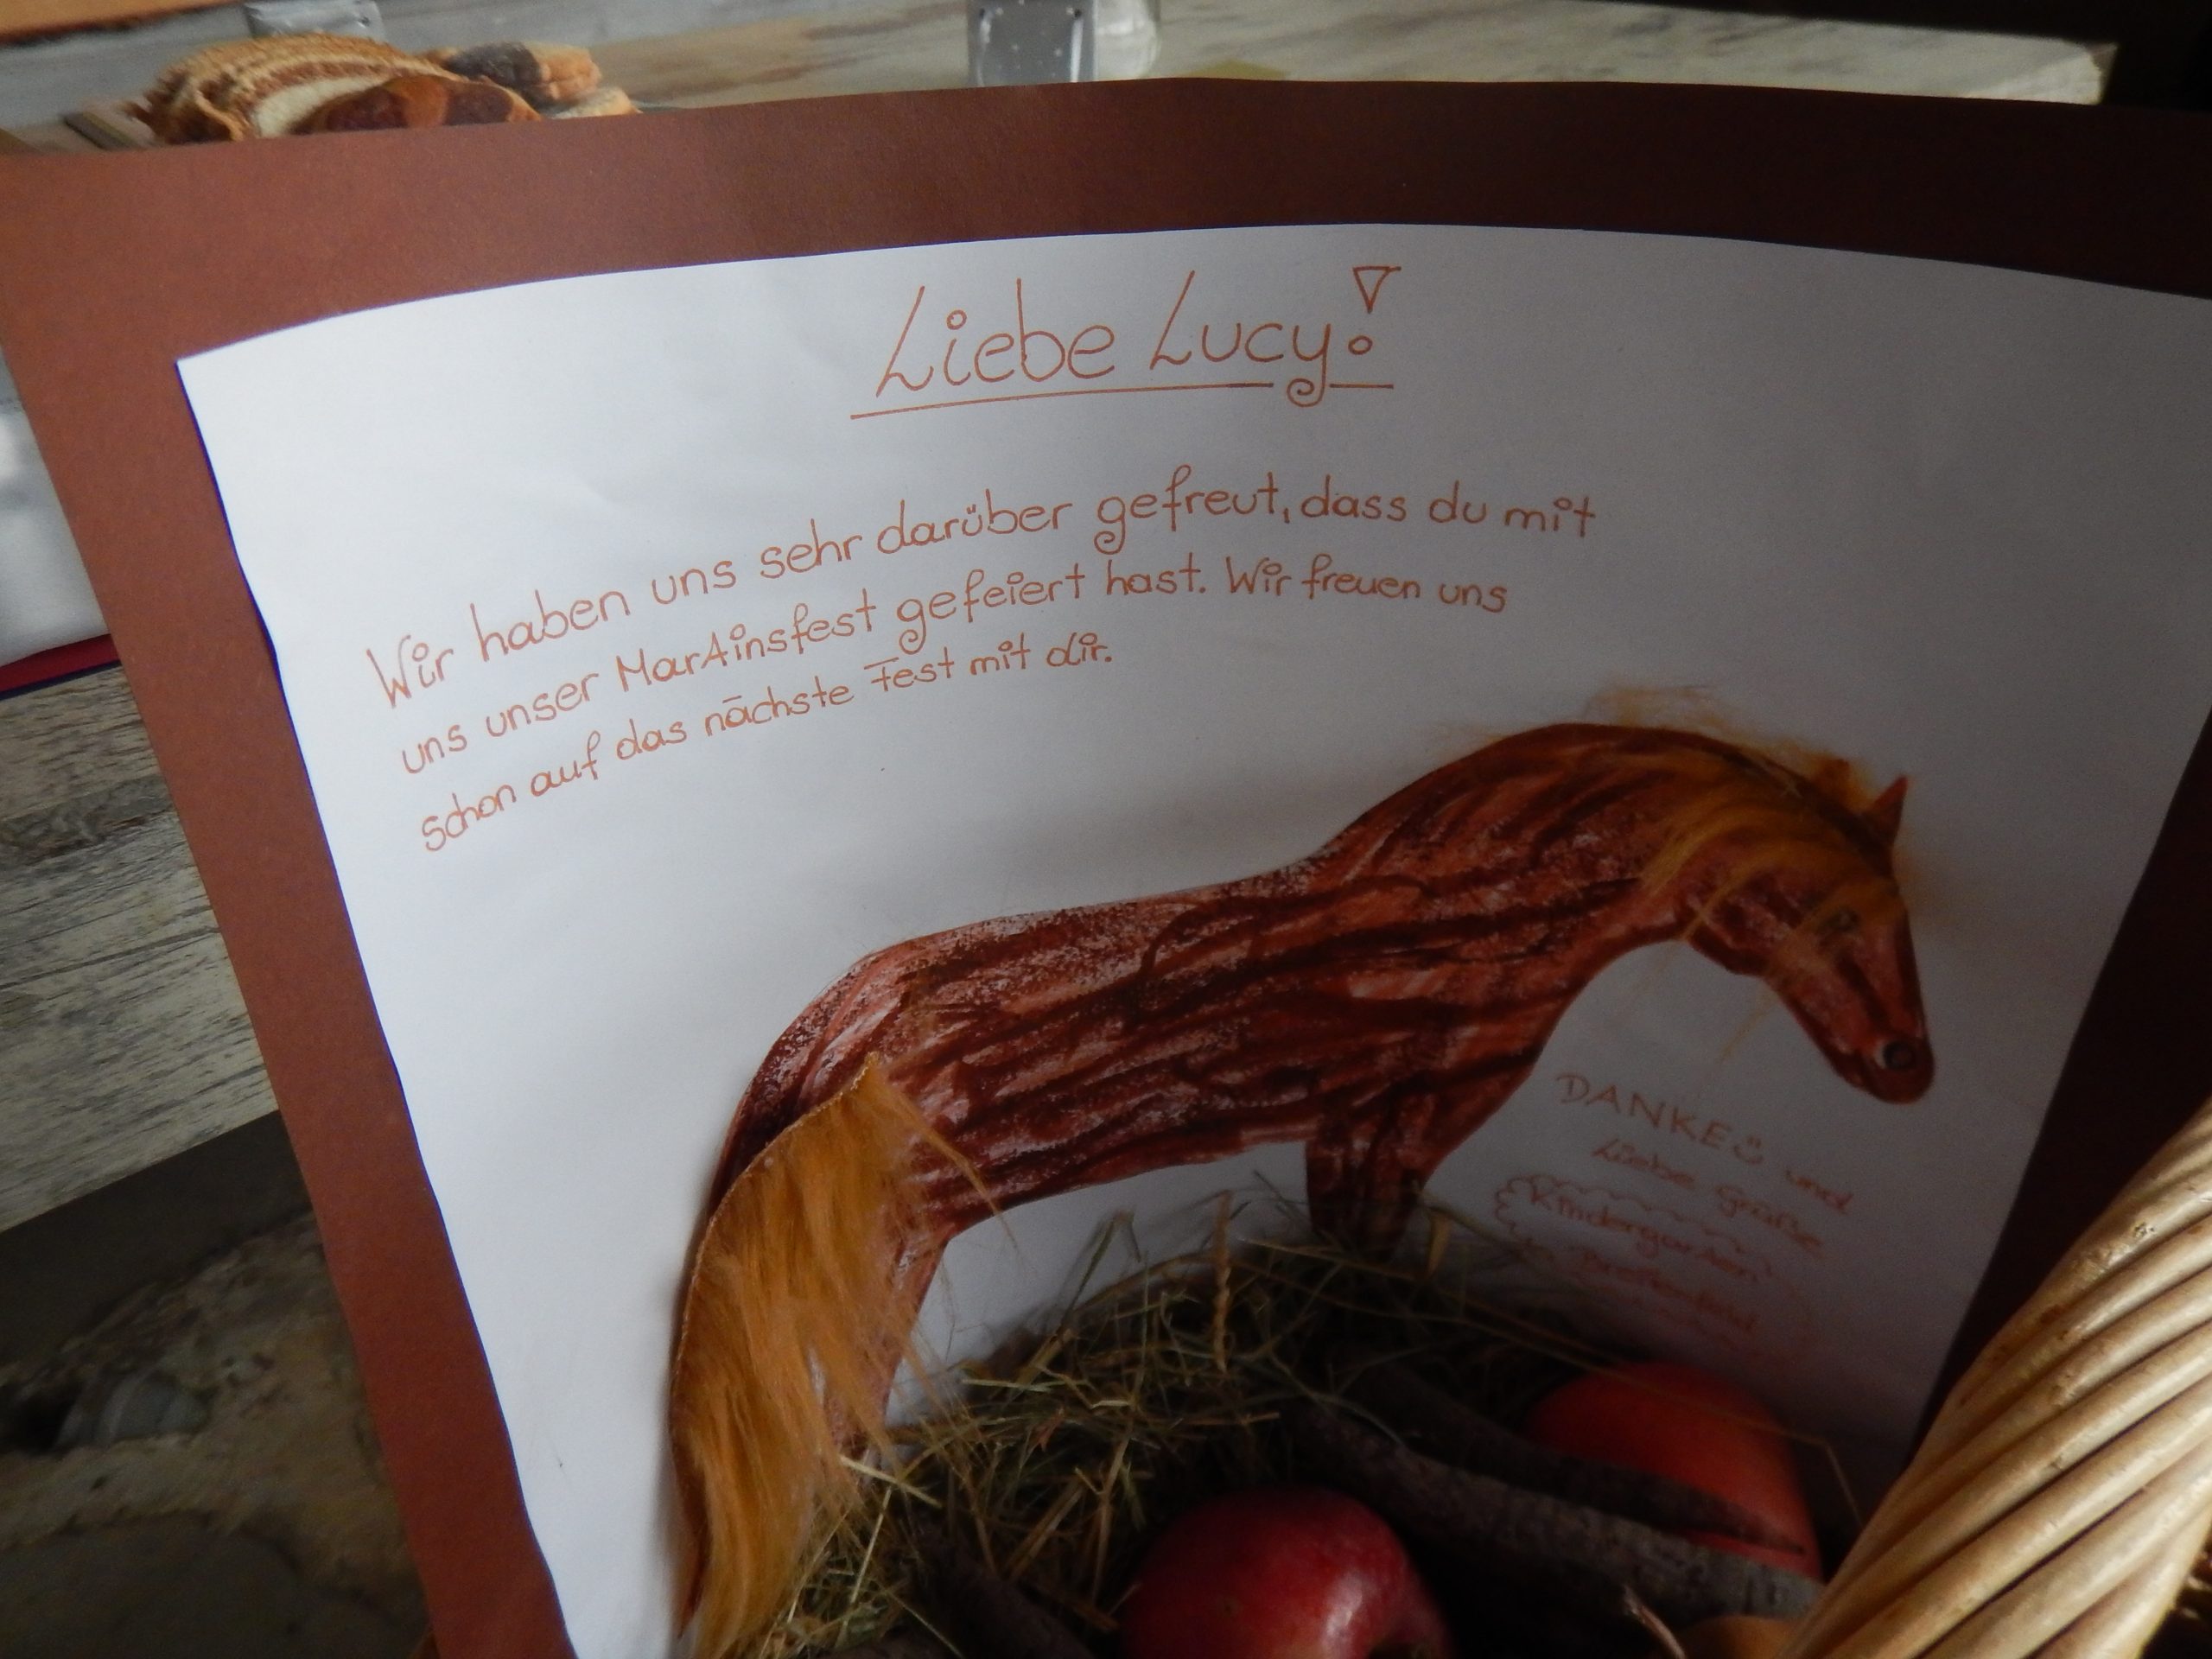 Liebe Lucy!
Wir haben uns sehr darüber gefreut, dass du mit
uns unser Martinsfest gefeiert hast. Wir freuen uns
schon auf das nächste Fest mit dir.
DANKE und
Liebe Grüße
Kindergarten